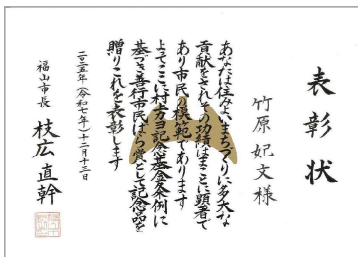 表彰状
竹原 妃文 様
あなたは住みよいまちづくりに多大な
貢献をされその功績はまことに顕著で
あり市民の模範であります
よってここに村上方ヨ記念基金条例に
基づき善行市民ばら賞として記念品を
贈りこれを表彰します
二〇二五年(令和七年)十二月十三日
福山市長 枝広 直幹